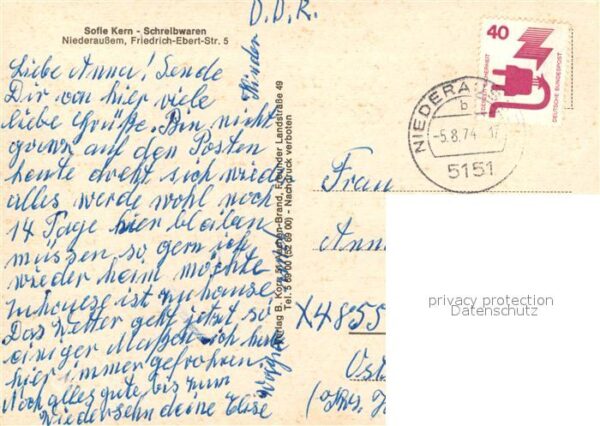 Sofie Kern - Schreibwaren
Niederaußem, Friedrich-Ebert-Str. 5
D.D.R.
Liebe Anna! Sende
Dir von hier viele
liebe Grüße. Bin nicht
ganz auf den Posten
heute dreht sich wieder
alles werde wohl noch
14 Tage hier bleiben
müssen so gern ich
wieder heim möchte
zuhause ist zuhause
Das Wetter geht jetzt so
einiger Maßen ich hab
hier immer gefroren
Noch alles gute bis zum
Wiedersehn deine Elise
Kinder
Nachdruck verboten
40
DEUTSCHE BUNDESPOST
NIEDERAU
b
-5.8.74
5151
Frau
Ann
X4855
Ost
(Krs.
privacy protection
Datenschutz